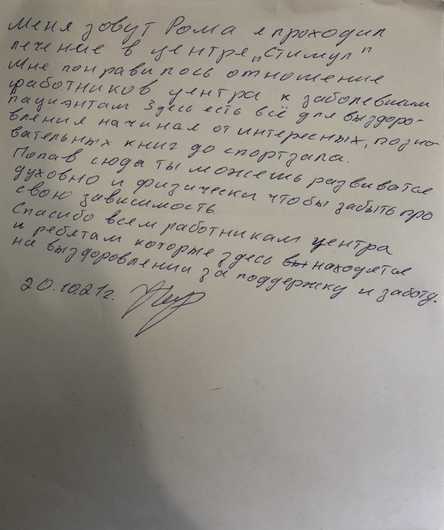 Меня зовут Рома я проходил
лечение в центре „Стимул"
Мне понравилось отношение
работников центра к заболевшим
пациентам здесь есть всё для выздоро-
вления начиная от интересных, позна-
вательных книг до спортзала.
Попав сюда ты можешь развиватся
духовно и физически чтобы забыть про
свою зависимость
Спасибо всем работникам центра
и ребятам которые здесь находятся
на выздоровлении за поддержку и заботу.
20.10.21г.